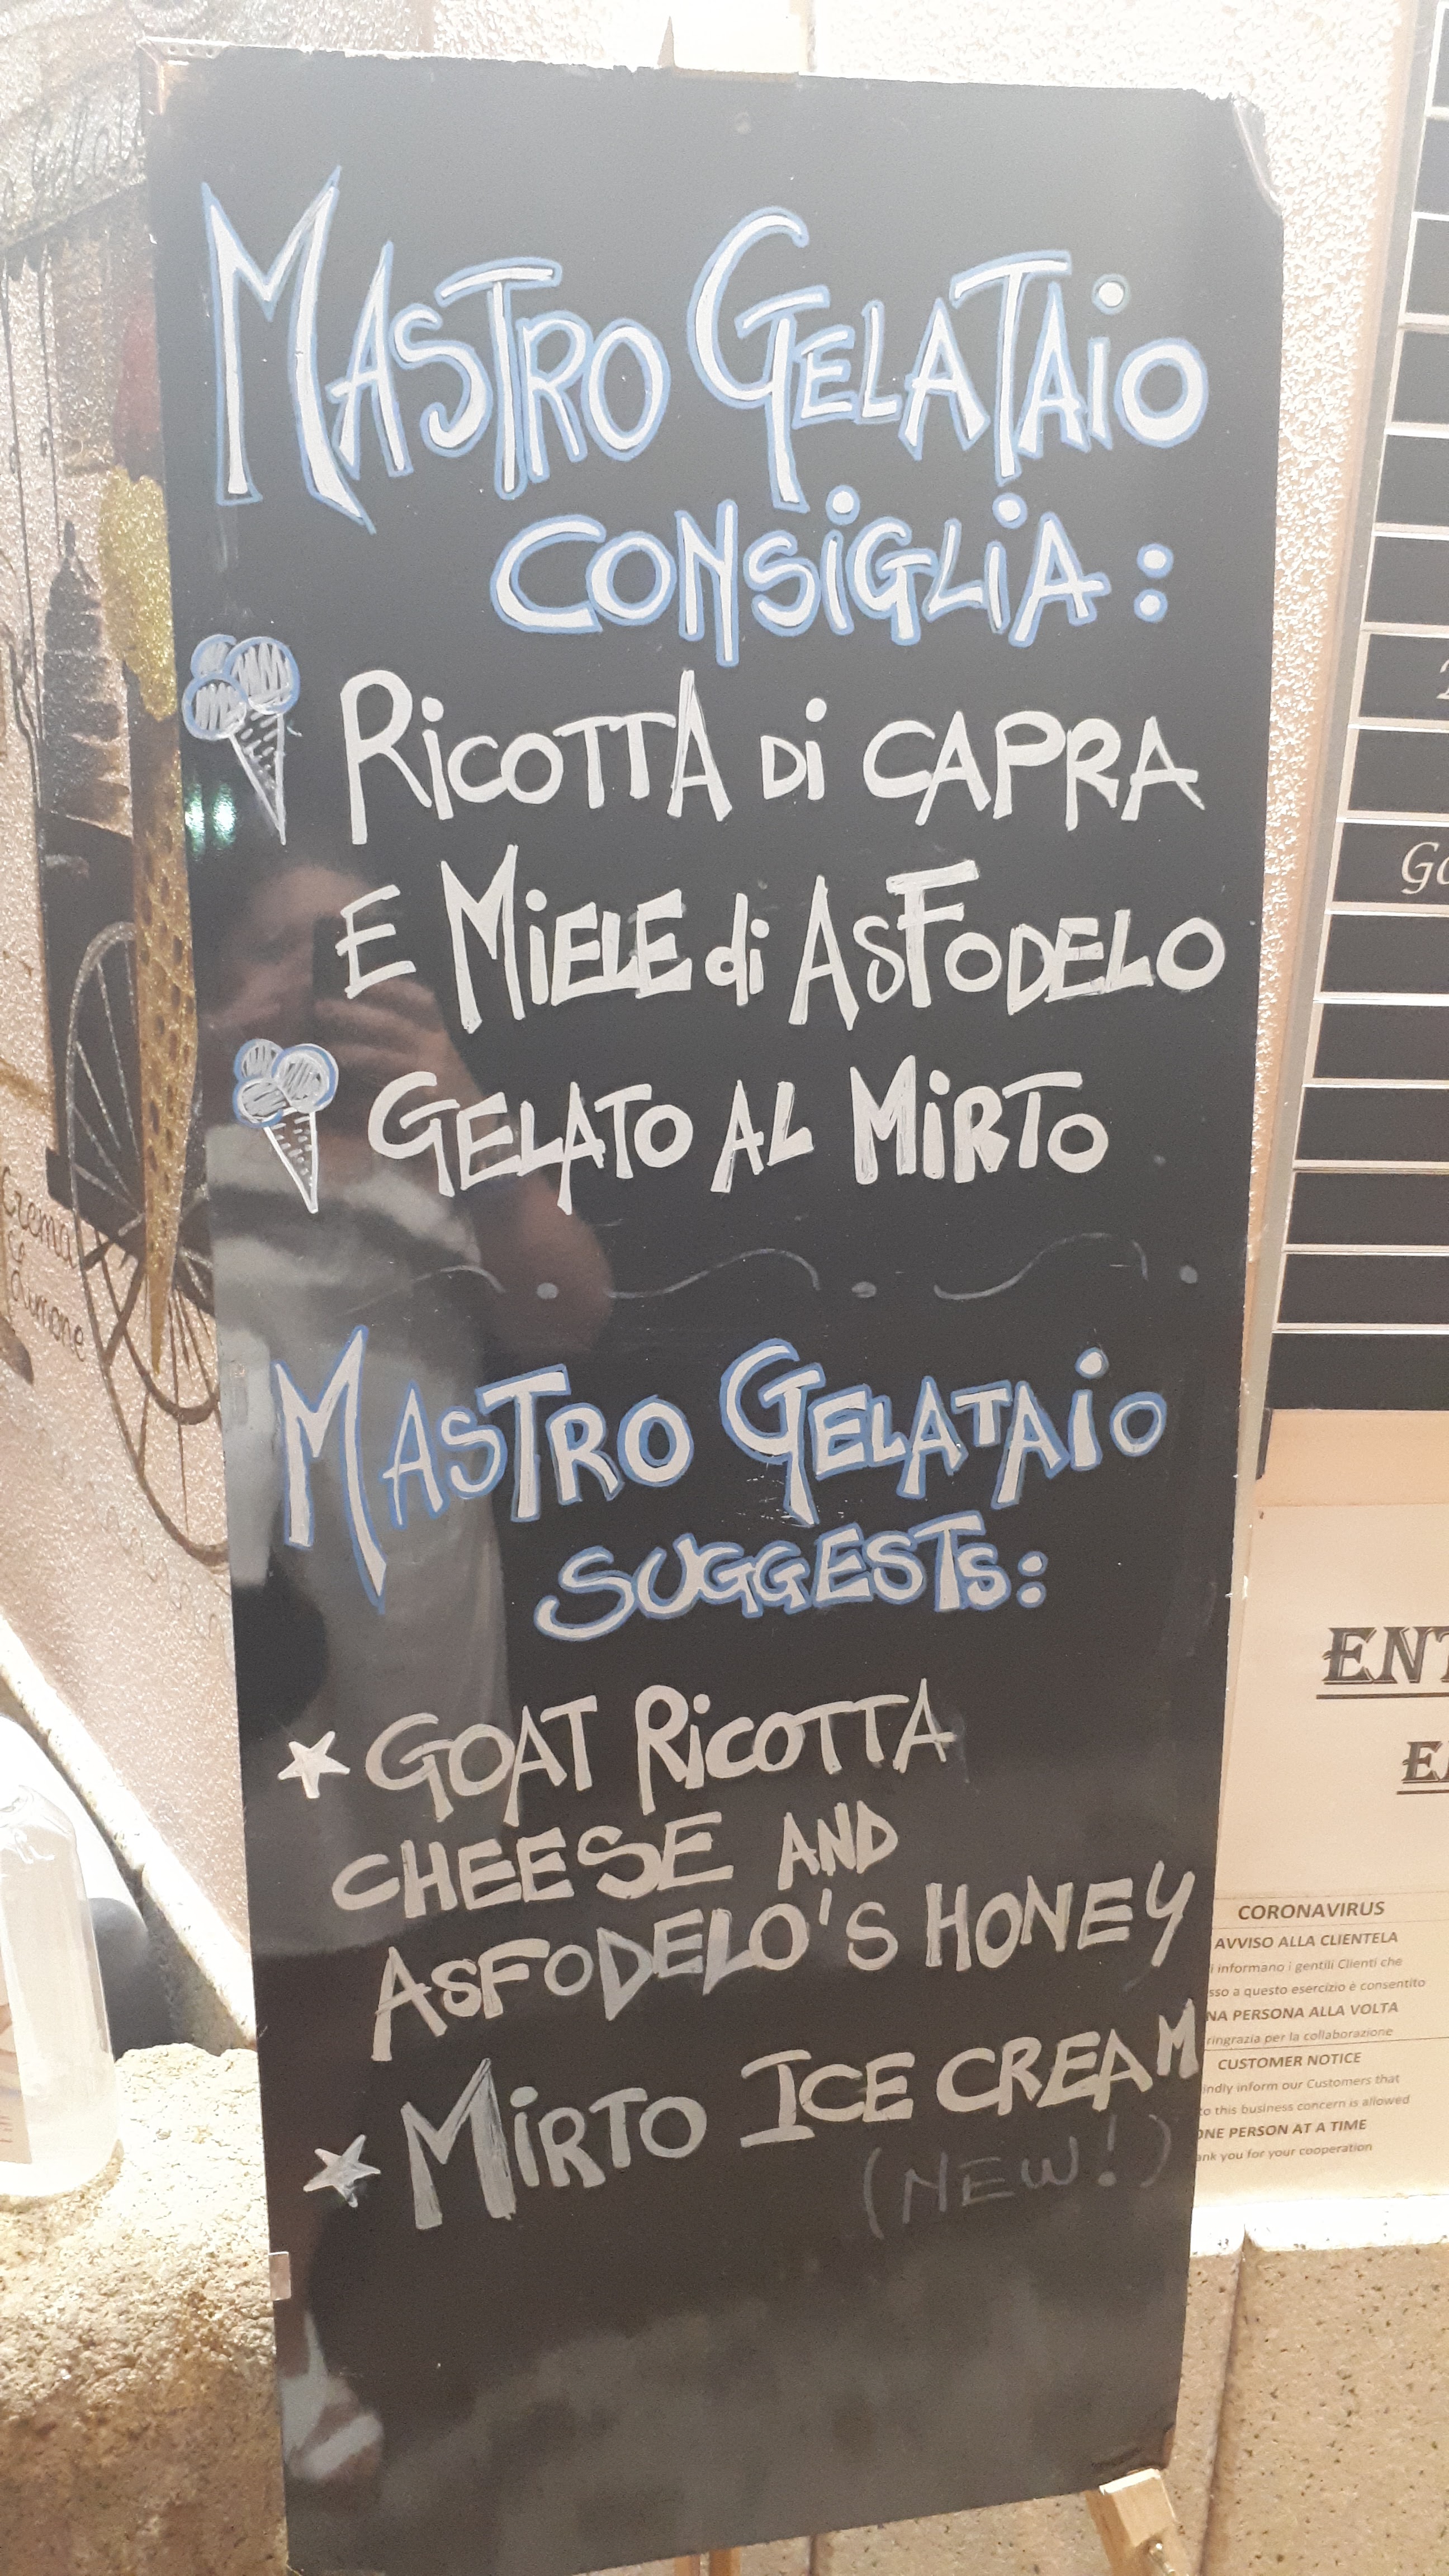 MASTRO GELATAIO
CONSIGLIA:
RICOTTA Di CAPRA
E MiELE di ASFODELO
GELATO AL MiRTO
MASTRO GELATAIO
SUGGESTS:
GOAT RICOTTA
CHEESE AND
ASFODELO'S HONEY
MiRTO ICE CREAM
(NEW!)
Crema
Limone
CORONAVIRUS
AVVISO ALLA CLIENTELA
informano i gentili Clienti che
a questo esercizio è consentito
PERSONA ALLA VOLTA
ringrazia per la collaborazione
CUSTOMER NOTICE
inform our Customers that
this business concern is allowed
ONE PERSON AT A TIME
you for your cooperation